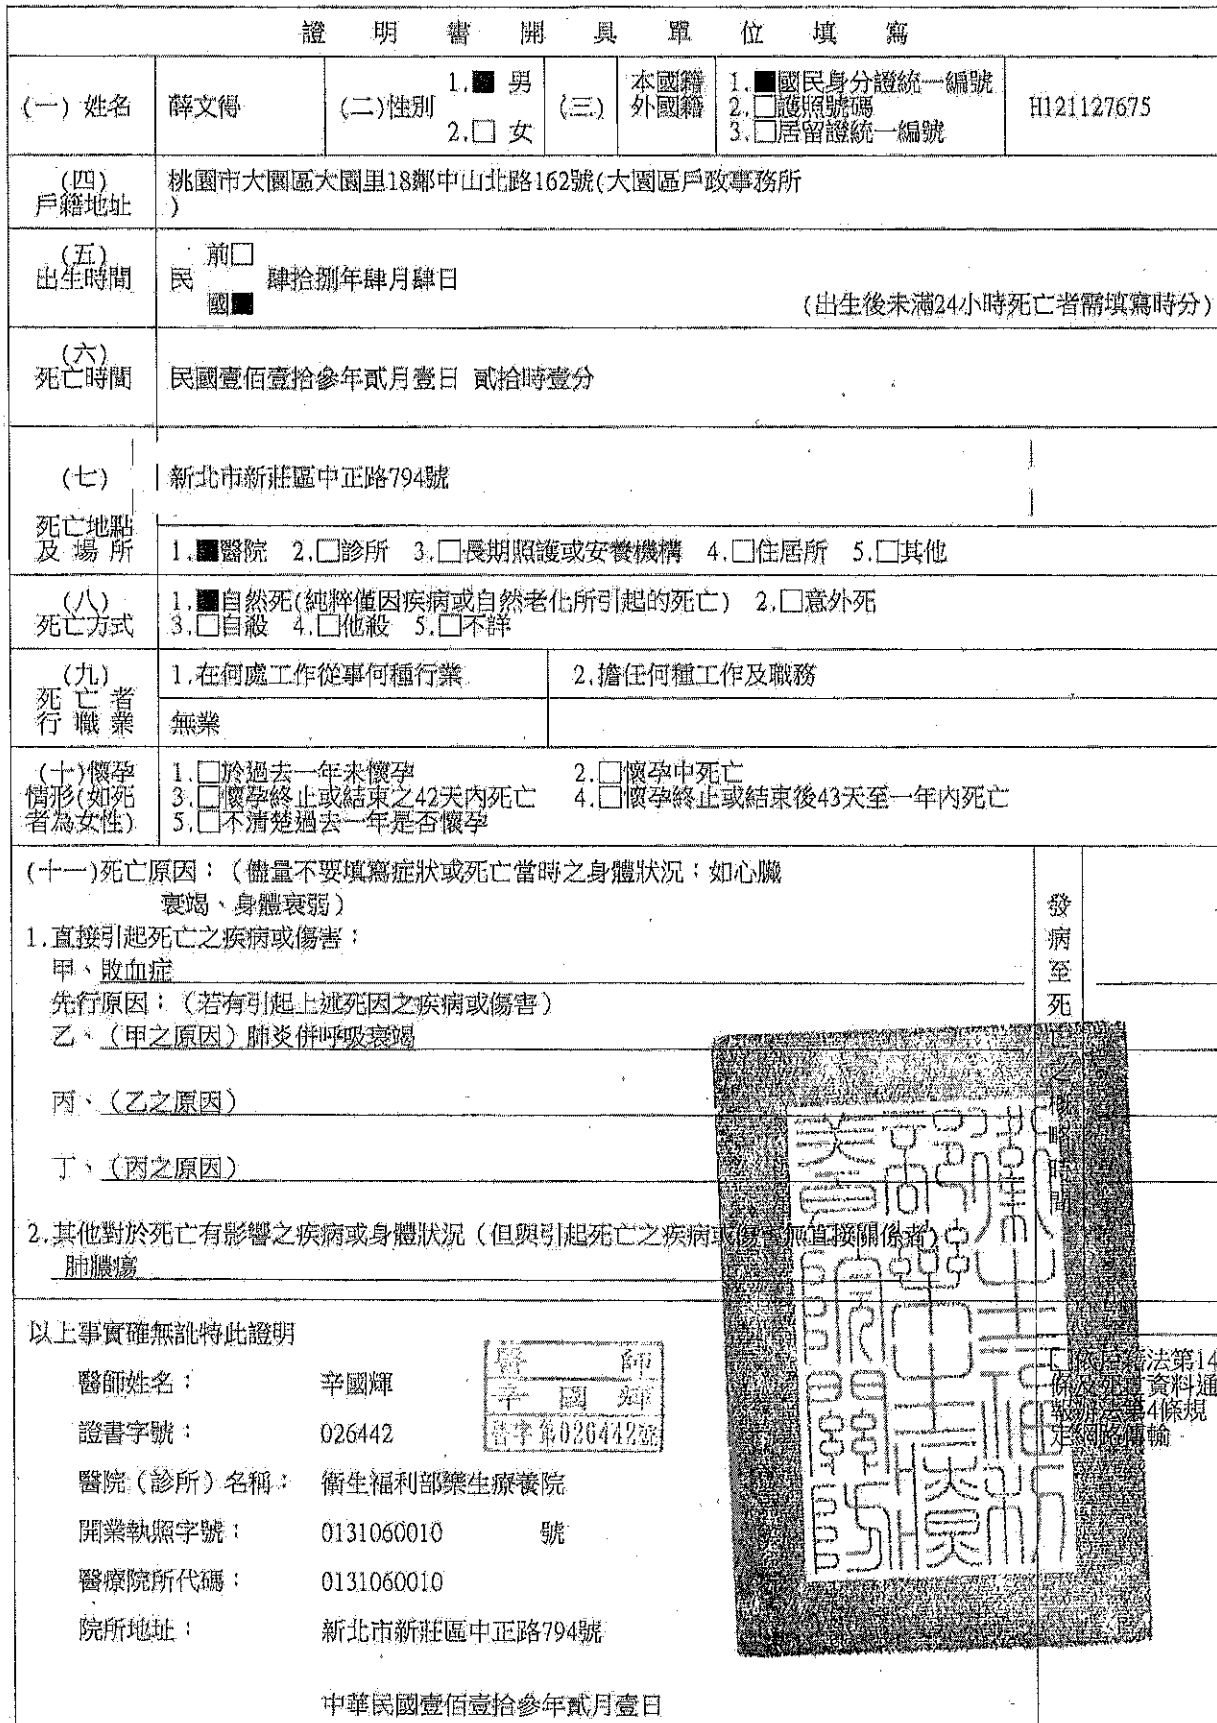 證明書開具單位填寫
(一) 姓名
薛文得
(二)性別
1.■ 男
2.□ 女
(三)
本國籍
外國籍
1.■國民身分證統一編號
2.□護照號碼
3.□居留證統一編號
H121127675
(四)
戶籍地址
桃園市大園區大園里18鄰中山北路162號(大園區戶政事務所
)
(五)
出生時間
民
前□
國■
肆拾捌年肆月肆日
(出生後未滿24小時死亡者需填寫時分)
(六)
死亡時間
民國壹佰壹拾參年貳月壹日 貳拾時壹分
(七)
死亡地點
及場所
新北市新莊區中正路794號
1.■醫院 2.□診所 3.□長期照護或安養機構 4.□住居所 5.□其他
(八)
死亡方式
1.■自然死(純粹僅因疾病或自然老化所引起的死亡) 2.□意外死
3.□自殺 4.□他殺 5.□不詳
(九)
死亡者
行職業
1.在何處工作從事何種行業
2.擔任何種工作及職務
無業
(十)懷孕
情形(如死
者為女性)
1.□於過去一年未懷孕 2.□懷孕中死亡
3.□懷孕終止或結束之42天內死亡 4.□懷孕終止或結束後43天至一年內死亡
5.□不清楚過去一年是否懷孕
(十一)死亡原因：（儘量不要填寫症狀或死亡當時之身體狀況；如心臟
衰竭、身體衰弱）
1.直接引起死亡之疾病或傷害：
甲、敗血症
先行原因：（若有引起上述死因之疾病或傷害）
乙、（甲之原因）肺炎併呼吸衰竭
丙、（乙之原因）
丁、（丙之原因）
2.其他對於死亡有影響之疾病或身體狀況（但與引起死亡之疾病或傷害無直接關係者）
肺膿瘍
發病至死亡之概略時間
以上事實確無訛特此證明
醫師姓名： 辛國輝
證書字號： 026442
醫院（診所）名稱： 衛生福利部樂生療養院
開業執照字號： 0131060010 號
醫療院所代碼： 0131060010
院所地址： 新北市新莊區中正路794號
中華民國壹佰壹拾參年貳月壹日
醫師
辛國輝
醫字第026442號
□依戶籍法第14
條及死亡資料通
報辦法第4條規
定網路傳輸